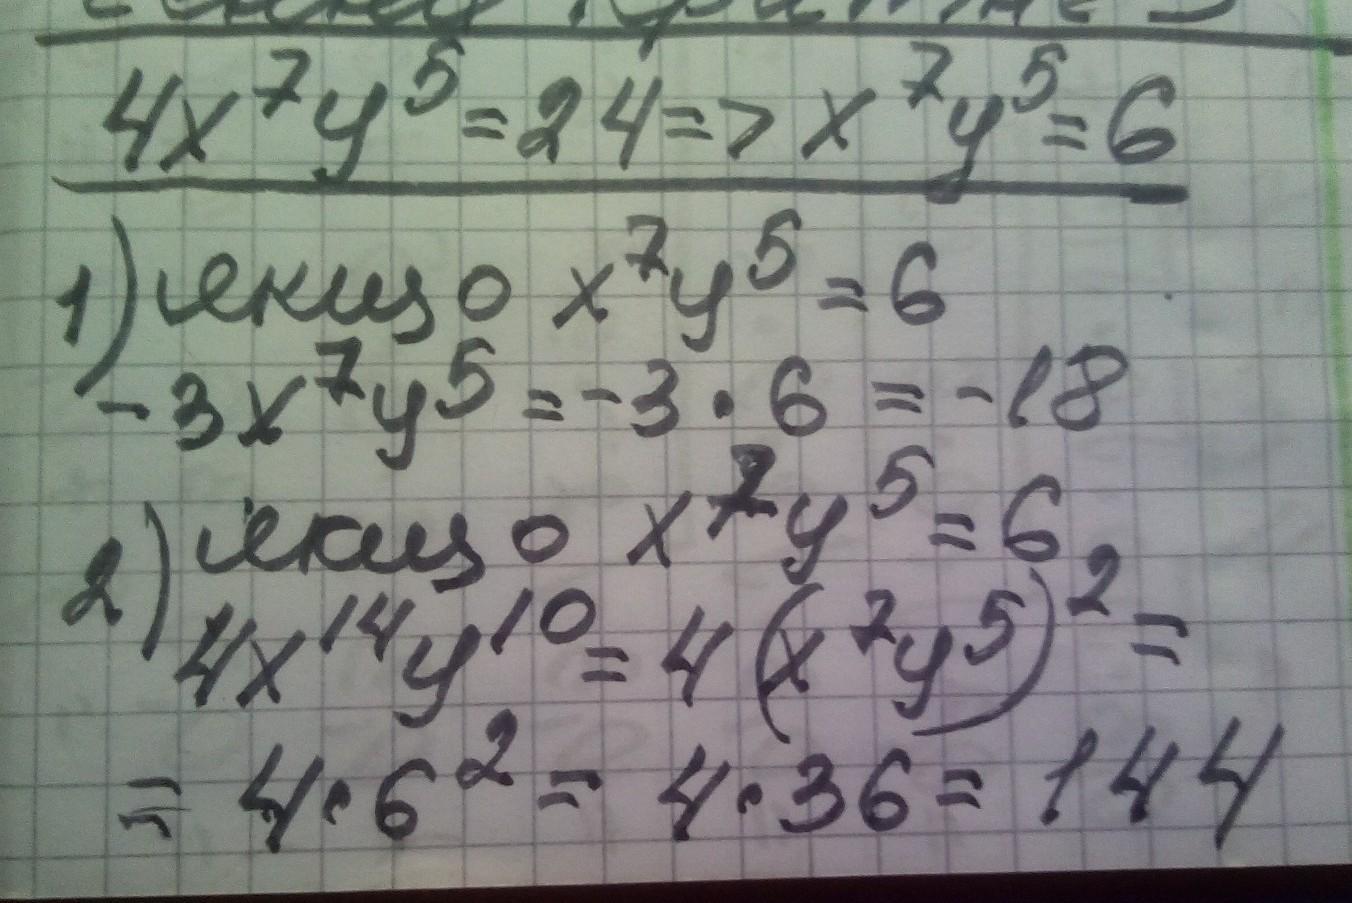 4x⁷y⁵=24=>x⁷y⁵=6
1) якщо x⁷y⁵=6
-3x⁷y⁵=-3·6=-18
2) якщо x⁷y⁵=6
4x¹⁴y¹⁰=4(x⁷y⁵)²=
=4·6²=4·36=144